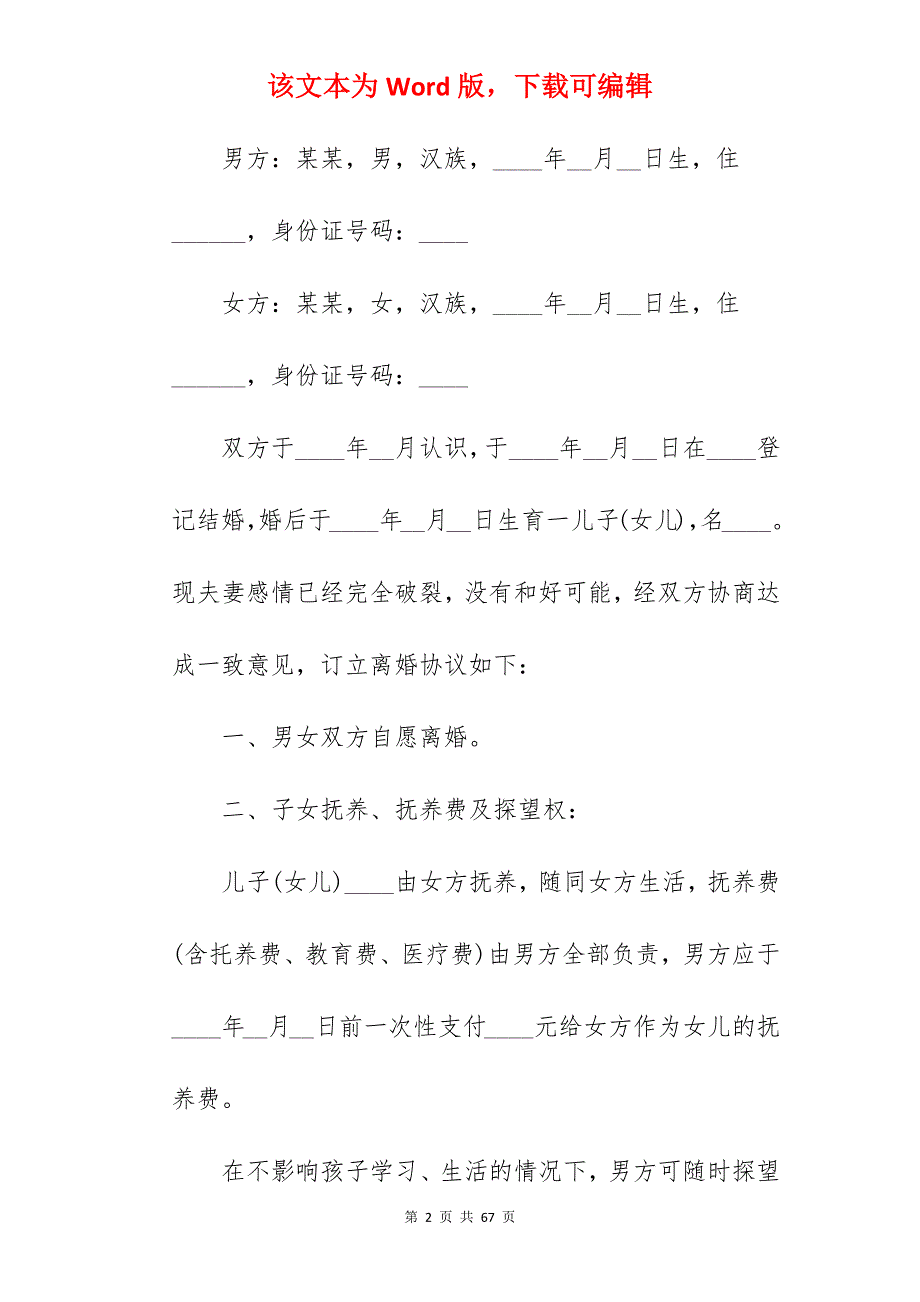 该文本为 Word 版，下载可编辑
男方：某某，男，汉族，____年__月__日生，住
______，身份证号码：____
女方：某某，女，汉族，____年__月__日生，住
______，身份证号码：____
双方于____年__月认识,于____年__月__日在____登
记结婚,婚后于____年__月__日生育一儿子(女儿),名____。
现夫妻感情已经完全破裂，没有和好可能，经双方协商达
成一致意见，订立离婚协议如下：
一、男女双方自愿离婚。
二、子女抚养、抚养费及探望权：
儿子(女儿)____由女方抚养，随同女方生活，抚养费
(含托养费、教育费、医疗费)由男方全部负责，男方应于
____年__月__日前一次性支付____元给女方作为女儿的抚
养费。
在不影响孩子学习、生活的情况下，男方可随时探望
第 2 页 共 67 页